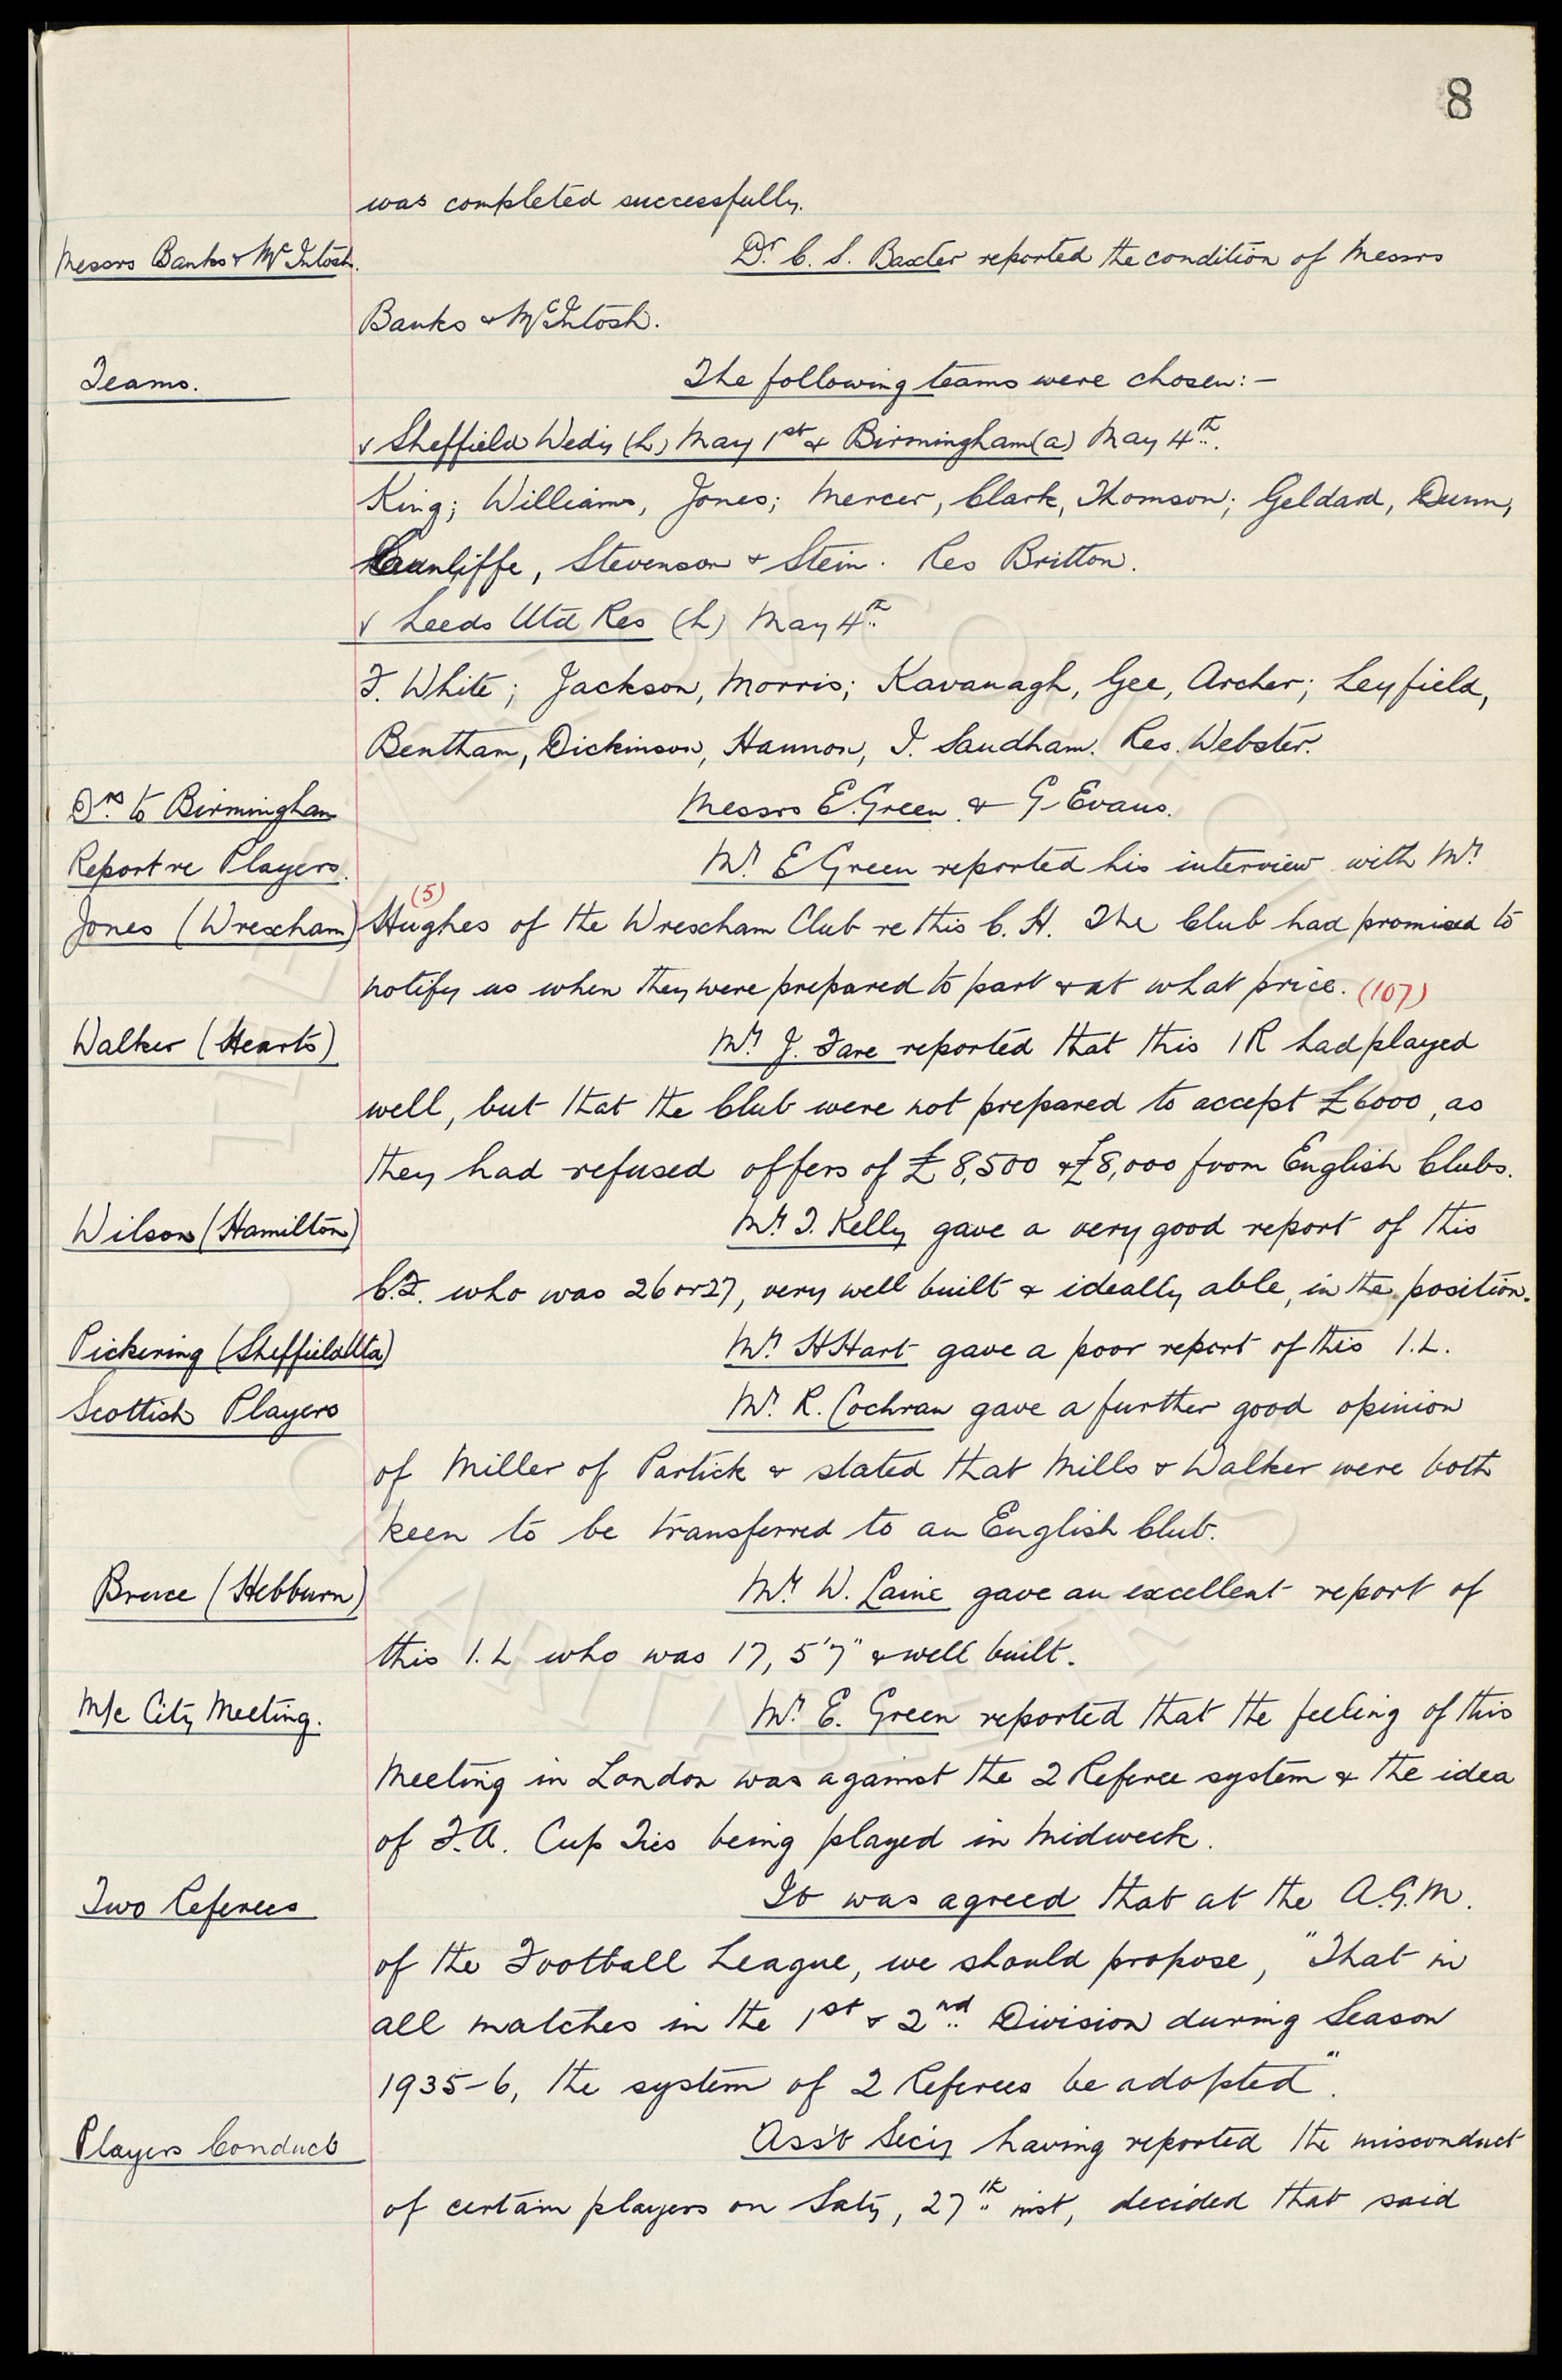 8
was completed successfully.
Messrs Banks & McIntosh. Dr. C. S. Baxter reported the condition of Messrs
Banks & McIntosh.
Teams. The following teams were chosen:-
v Sheffield Wedy (h) May 1st & Birmingham (a) May 4th.
King; Williams, Jones; Mercer, Clark, Thomson; Geldard, Dunn,
Cunliffe, Stevenson & Stein. Res Britton.
v Leeds Utd Res (h) May 4th
F. White; Jackson, Morris; Kavanagh, Gee, Archer; Leyfield,
Bentham, Dickinson, Hannon, J. Sandham. Res. Webster.
Drs. to Birmingham Messrs E. Green & G. Evans.
Report re Players. Mr. E Green reported his interview with Mr.
(5)
Jones (Wrexham) Hughes of the Wrexham Club re this C.H. The Club had promised to
notify us when they were prepared to part & at what price. (107)
Walker (Hearts) Mr. J. Fare reported that this IR had played
well, but that the Club were not prepared to accept £6000, as
they had refused offers of £8,500 & £8,000 from English Clubs.
Wilson (Hamilton) Mr. T. Kelly gave a very good report of this
C.F. who was 26 or 27, very well built & ideally able, in the position.
Pickering (Sheffield Utd) Mr. H Hart gave a poor report of this I.L.
Scottish Players Mr. R. Cochran gave a further good opinion
of Miller of Partick & stated that Mills & Walker were both
keen to be transferred to an English Club.
Bruce (Hebburn) Mr. W. Laine gave an excellent report of
this I.L who was 17, 5'7" & well built.
M/c City Meeting. Mr. E. Green reported that the feeling of this
Meeting in London was against the 2 Referee system & the idea
of F.A. Cup Ties being played in Midweek.
Two Referees It was agreed that at the A.G.M.
of the Football League, we should propose, "That in
all matches in the 1st & 2nd Division during Season
1935-6, the system of 2 Referees be adopted".
Players Conduct Ass't Secy having reported the misconduct
of certain players on Saty, 27th inst, decided that said